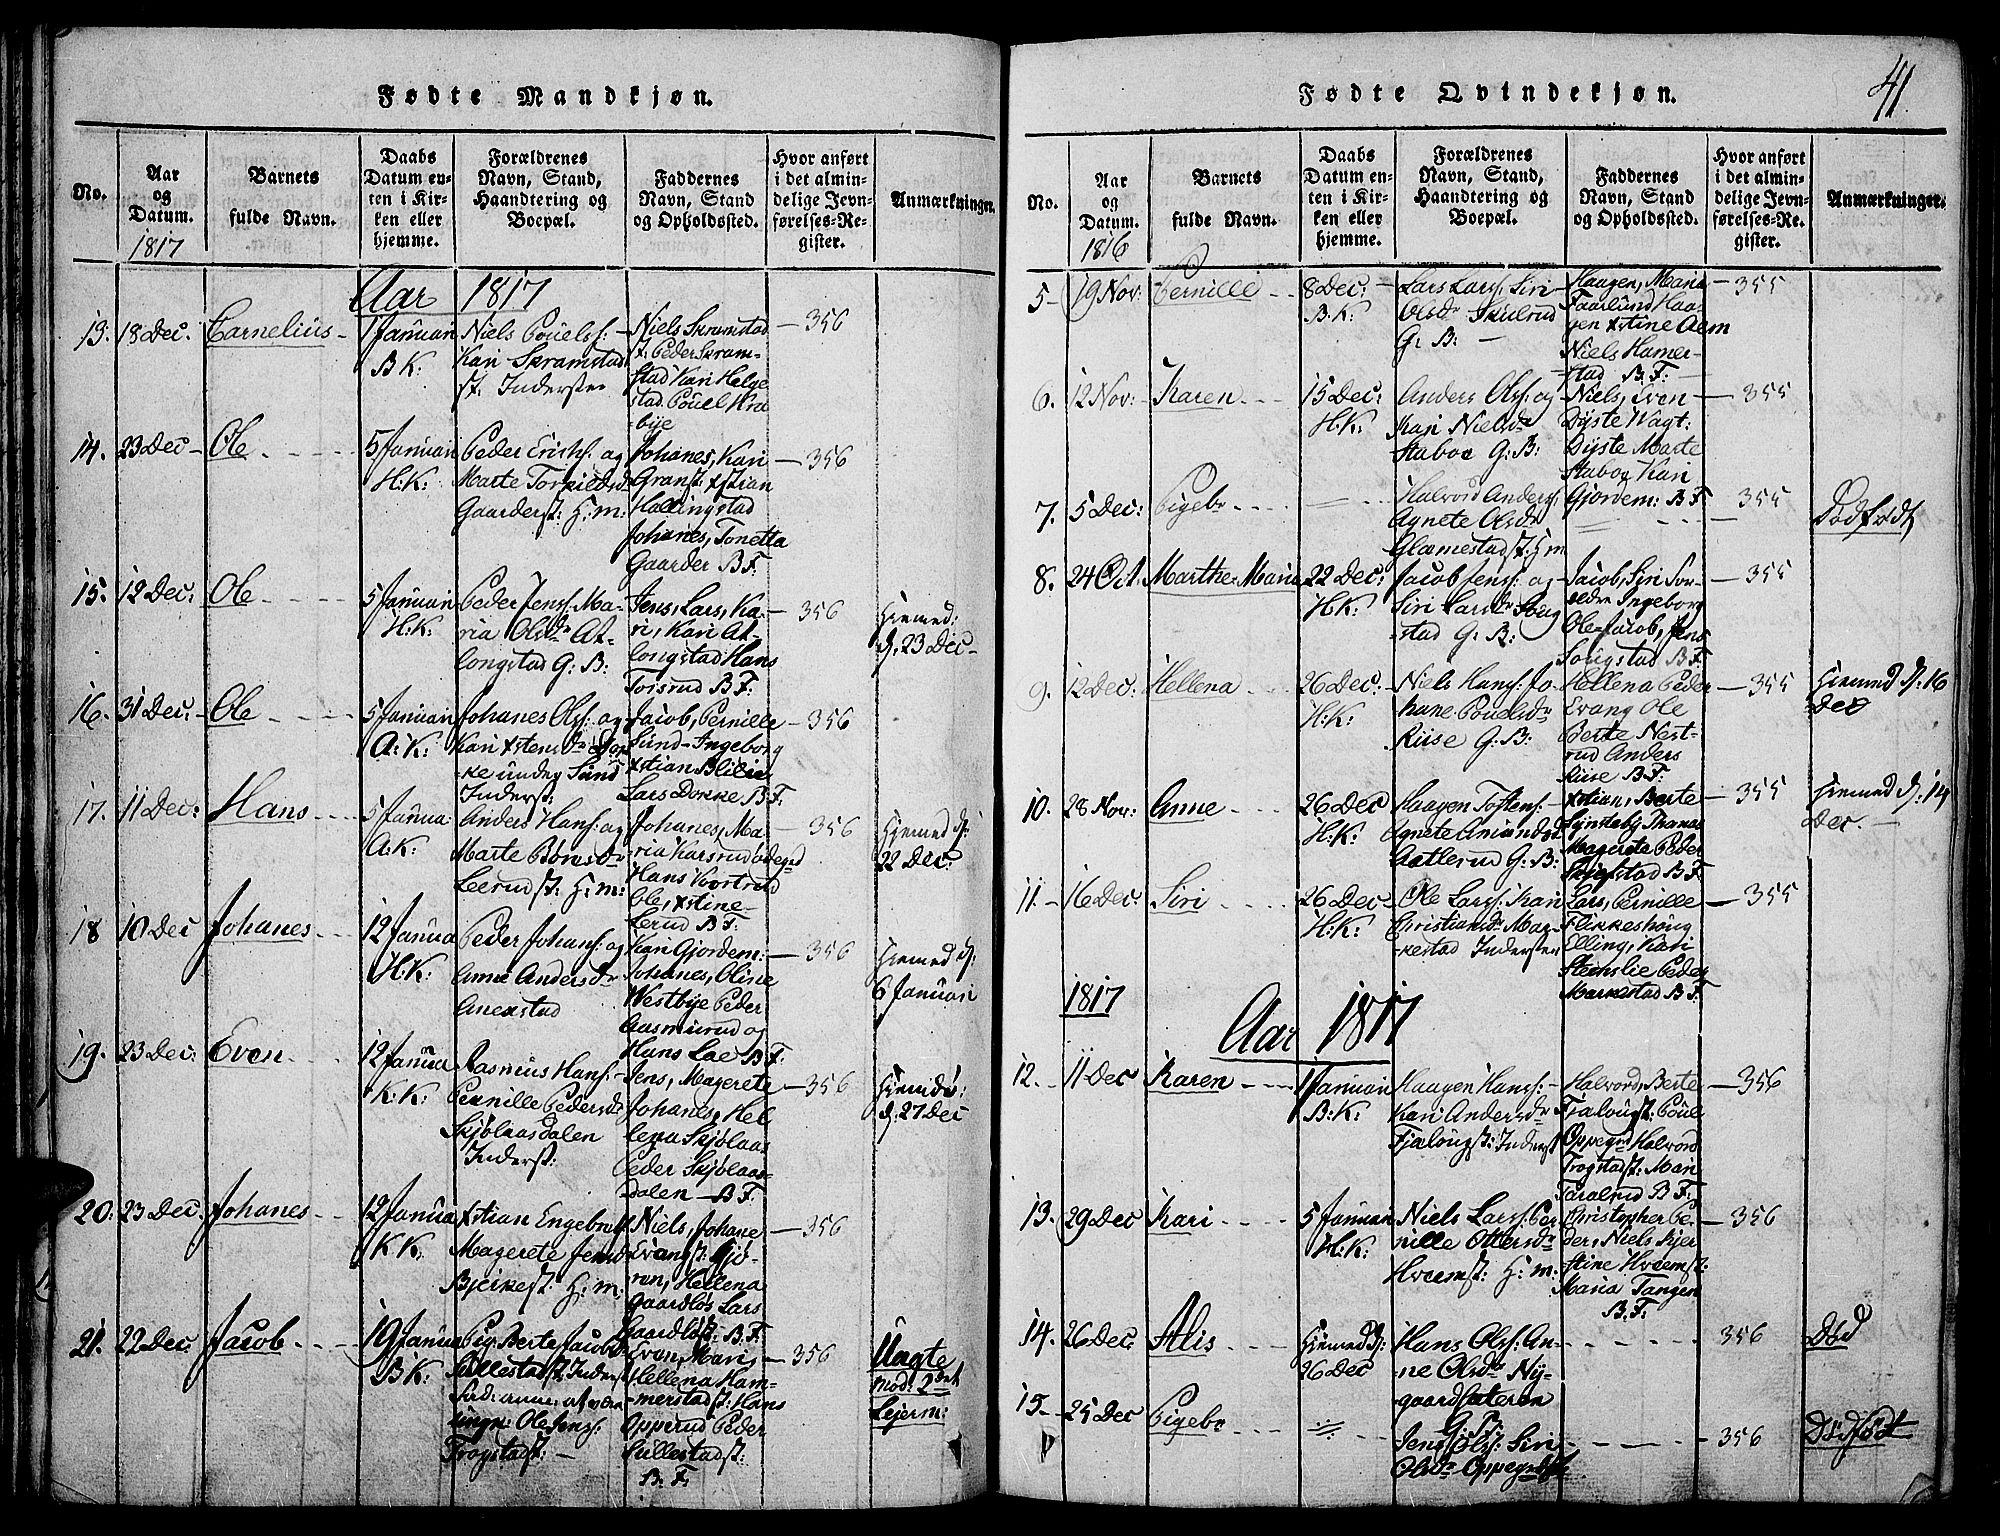 Fødte Mandkjøn.
No.
Aar
og
Datum.
1817
Barnets
fulde Navn.
Daabs
Datum en-
ten i Kir-
ken eller
hjemme.
Forældrenes
Navn, Stand,
Haandtering og
Boepæl.
Faddernes
Navn, Stand
og Opholdssted.
Hvor anført
i det almin-
delige Jevn-
førelses-Re-
gister.
Anmærkninger.
Aar 1817
13. 18 Dec: Cornelius
1 Januari
B K:
Niels Pouels:
Kari Skramstad
st: Inderster
Niels Skramstad
st: Peder Skram-
stad Kari Helge
stad Pouel Kra
bye
356
14. 23 Dec Ole
5 Januari
H: K:
Peder Erichs: og
Marte Torkieldsd
Gaarderst: H: m:
Johanes, Kari
Granst: xstian
Hallingstad
Johanes, Tonetta
Gaarder B F:
356
15. 12 Dec: Ole
5 Januari
H: K:
Peder Jens: Ma-
ria Olsdr At-
longstad G: B:
Jens, Lars, Ka-
ri, Kari At-
longstad Hans
Torsrud B F:
356
Hiemed:
d: 23 Dec
16. 31 Dec: Ole
5 Januari
A: K:
Johanes Ols: og
Kari xstensdr Dok
ke under Sund
Inderst:
Jacob, Pernille
Sund Ingeborg
xstian Blilie
Lars Dokke B F:
356
17. 11 Dec: Hans
5 Janua:
A: K:
Anders Hans: og
Marte Børesdr
Leerud st: H: m:
Johanes, Ma-
ria Karsrud ødegrd
Hans Kostrud
Ole, xstine
Lerud B F:
356
Hiemed d:
22 Dec:
18 10 Dec Johanes
12 Janua
H: K:
Peder Johans: og
Anne Andersdr
Anexstad
Kari Gjordem:
Johanes, Oline
Westbye Peder
Aasmurud og
Hans Lae B F:
356
Hiemed d:
6 Januari
19. 23 Dec: Even
12 Janua
K: K:
Rasmus Hans:
Pernille Pedersdr
Skjølaasdalen
Inderst:
Jens, Magerete
Johanes, Hel
lena Skjølaas
Peder Skjølaas-
dalen B F:
356
Hiemdø:
d: 27 Dec
20: 23 Dec. Johanes
12 Janua
K K:
xstian Engebretss
Magerete Jensd
Bjerkest: H: m:
Niels, Johane
Evangst: Gjø-
ron, Hellena
Gaardløs Lars
Gaardløst: B F:
356
21. 22 Dec: Jacob
19 Janua
B K:
Pig: Berte Jacobsd
Sillestadst: Inderst
Ole Jens:
Trogstadst:
Even, Maris
Hellena Ham-
merstadst: Hans
Opperud Peder
Sillestadst:
B. F:
356
Uægte
mod: 2det
Lejerm:
Fødte Qvindekjøn.
41.
No.
Aar
og
Datum.
1816
Barnets
fulde Navn.
Daabs
Datum en-
ten i Kir-
ken eller
hjemme.
Forældrenes
Navn, Stand,
Haandtering og
Boepæl.
Faddernes
Navn, Stand
og Opholdssted.
Hvor anført
i det almin-
delige Jevn-
førelses-Re-
gister.
Anmærkninger.
5 19 Nov: Pernille
8 Dec:
B. K:
Lars Lars: Siri
Olsdr Skulrud
G: B:
Haagen, Maria
Faarlund Haa-
gen xstine Aem
Niels Hamer-
stad B F:
355
6. 12 Nov: Karen
15 Dec:
H. K:
Anders Ols: og
Kari Nielsdr
Staboe G: B:
Niels, Even
Dyste Wagt:
Dyste Marte
Staboe Kari
Gjordem: B F
355
7. 5 Dec: Pigebr
Halvord Anders:
Agnete Olsdr
Glæmestad st: H m
355
Dødfødt
8. 24 Oct. Marthe Maria
22 Dec:
H. K:
Jacob Jens: og
Siri Larsdr Soug
stad G: B:
Jacob, Siri For-
ældre Ingeborg
Ole Jacob, Jens
Sougstad B F:
355
9. 12 Dec: Hellena
26 Dec:
H: K:
Niels Hans: Jo-
hane Pouelsdr
Riise G: B:
Hellena Peder
Evang Ole
Berte Nest-
rud Anders
Riise B F:
355
Hiemed d: 16
Dec
10. 28 Nov: Anne
26 Dec
H: K:
Haagen Tostens:
Agnete Amundsd
Aatlerud G: B:
xstian, Berte
Lynsteby
Magerete Peder
B F:
355
Hiemed d: 14
Dec.
11. 16 Dec. Siri
26 Dec
H: K:
Ole Lars: Kari
Christiansdr Mar-
kestad Inderster
Lars, Pernille
Flikkeshoug
Elling, Kari
Steenslie Peder
Markestad B F:
355
1817
Aar 1817
12. 11 Dec Karen
1 Januari
B: K:
Haagen Hans:
Kari Andersdr
Fjælougst: Inderst
Halvord, Berte
Fjælougst: Pouel
Oppegrd Halvord
Trogstadst: Mari
Taralrud B F:
356
13. 29 Dec Kari
5 Januari
H: K:
Niels Lars: Per
nille Ottersdr
Hveemst: H: m:
Christopher Pe-
der, Niels Kjer
stine Hveemst:
Maria Tangen
B. F:
356
14. 26 Dec: Alis
Hiemed d:
26 Dec
Hans Ols: An-
ne Olsdr Ny-
gaardsæteren
G: B:
356
Død
15 25 Dec Pigebr
Jens Ols: Siri
Olsdr Oppegrdst:
356
Dødfødt